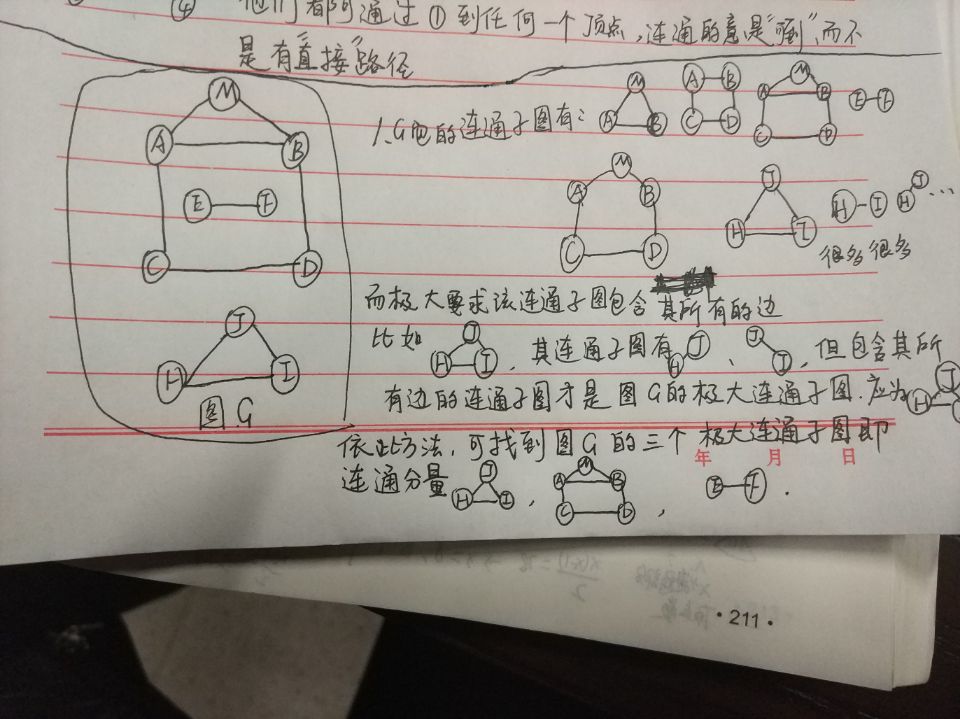 ④ 他们都可通过①到任何一个顶点,连通的意是"到",而不
是有"直接"路径
M
A B
E F
C D
J
H I
图 G
1.G吧的连通子图有:
M A B
A B C D M A B C D E F
M A B C D
J H I H I H J …
很多很多
而极大要求该连通子图包含 其所有的边
比如 J H I , 其连通子图有 H J 、 J I , 但包含其所
有边的连通子图才是图G的极大连通子图.应为 J H
依此方法,可找到图G的三个极大连通子图即
年 月 日
连通分量 J H I , M A B C D , E F .
·211·